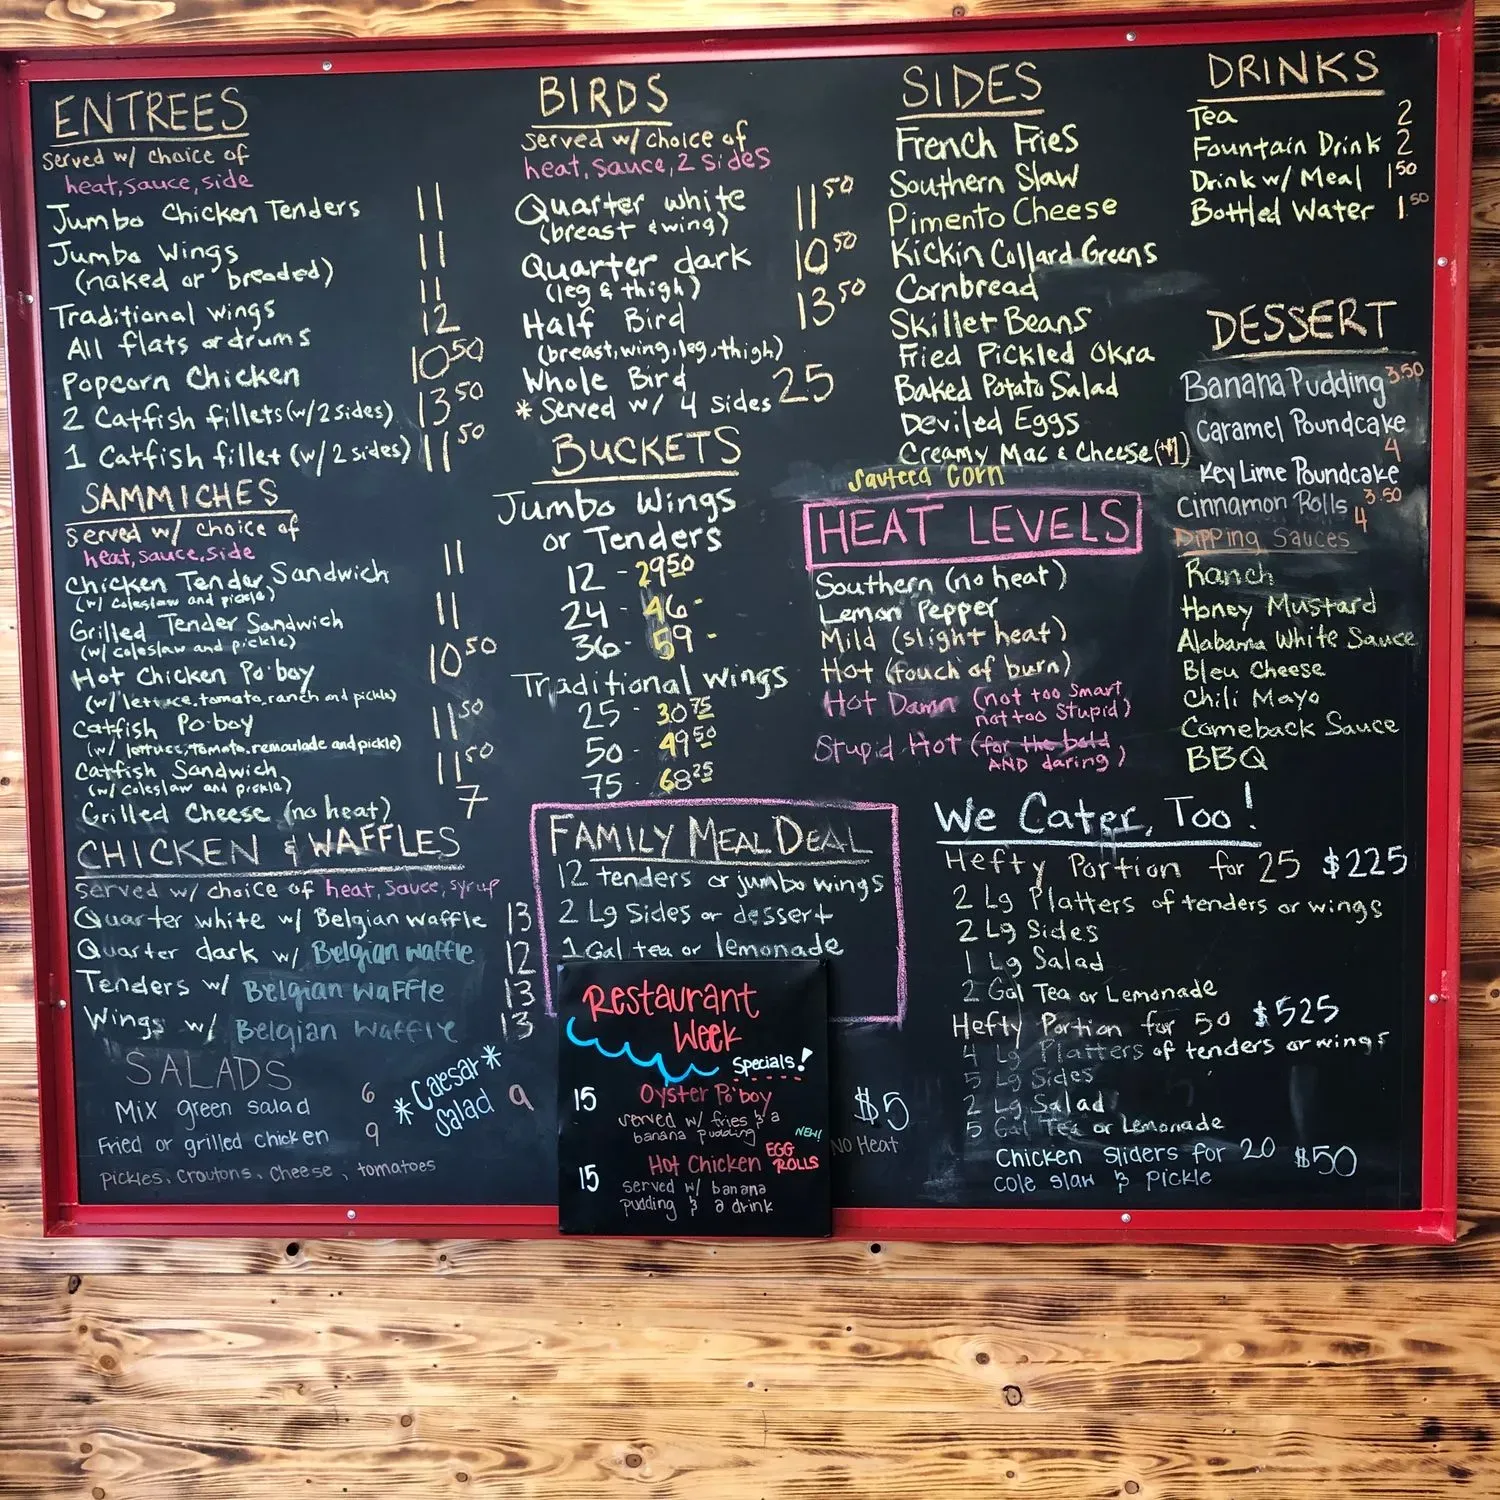 ENTREES
served w/ choice of
heat, sauce, side
Jumbo Chicken Tenders 11
Jumbo Wings 11
(naked or breaded)
Traditional wings 11
All flats or drums 12
Popcorn Chicken 10 50
2 Catfish fillets (w/ 2 sides) 13 50
1 Catfish fillet (w/ 2 sides) 11 50
SAMMICHES
served w/ choice of
heat, sauce, side
Chicken Tender Sandwich 11
(w/ coleslaw and pickle)
Grilled Tender Sandwich 11
(w/ coleslaw and pickle)
Hot Chicken Po'boy 10 50
(w/ lettuce, tomato, ranch and pickle)
Catfish Po'boy 11 50
(w/ lettuce, tomato, remoulade and pickle)
Catfish Sandwich 11 50
(w/ coleslaw and pickle)
Grilled Cheese (no heat) 7
CHICKEN & WAFFLES
served w/ choice of heat, sauce, syrup
Quarter white w/ Belgian waffle 13
Quarter dark w/ Belgian waffle 12
Tenders w/ Belgian waffle 13
Wings w/ Belgian waffle 13
SALADS
Mix green salad 6
Fried or grilled chicken 9
pickles, croutons, cheese, tomatoes
*Caesar*
Salad 9
BIRDS
served w/ choice of
heat, sauce, 2 sides
Quarter white 11 50
(breast & wing)
Quarter dark 10 50
(leg & thigh)
Half Bird 13 50
(breast, wing, leg, thigh)
Whole Bird 25
* Served w/ 4 sides
BUCKETS
Jumbo Wings
or Tenders
12 - 29 50
24 - 46 -
36 - 59 -
Traditional wings
25 - 30 75
50 - 49 50
75 - 68 25
FAMILY MEAL DEAL
12 tenders or jumbo wings
2 Lg Sides or dessert
1 Gal tea or lemonade
Restaurant
Week
Specials!
15 Oyster Po'boy
served w/ fries & a
banana pudding
NEW!
15 Hot Chicken EGG ROLLS
served w/ banana
pudding & a drink
$5
NO Heat
SIDES
French Fries
Southern Slaw
Pimento Cheese
Kickin Collard Greens
Cornbread
Skillet Beans
Fried Pickled Okra
Baked Potato Salad
Deviled Eggs
Creamy Mac & Cheese (+1)
Sauteed Corn
HEAT LEVELS
Southern (no heat)
Lemon Pepper
Mild (slight heat)
Hot (touch of burn)
Hot Damn (not too smart,
not too stupid)
Stupid Hot (for the bold
AND daring)
DRINKS
Tea 2
Fountain Drink 2
Drink w/ Meal 1 50
Bottled Water 1 50
DESSERT
Banana Pudding 3.50
Caramel Poundcake 4
Key Lime Poundcake 3.50
Cinnamon Rolls 4
Dipping Sauces
Ranch
Honey Mustard
Alabama White Sauce
Bleu Cheese
Chili Mayo
Comeback Sauce
BBQ
We Cater, Too!
Hefty Portion for 25 $225
2 Lg Platters of tenders or wings
2 Lg Sides
1 Lg Salad
2 Gal Tea or Lemonade
Hefty Portion for 50 $525
4 Lg Platters of tenders or wings
5 Lg Sides
2 Lg Salad
5 Gal Tea or Lemonade
Chicken Sliders for 20 $50
cole slaw & pickle